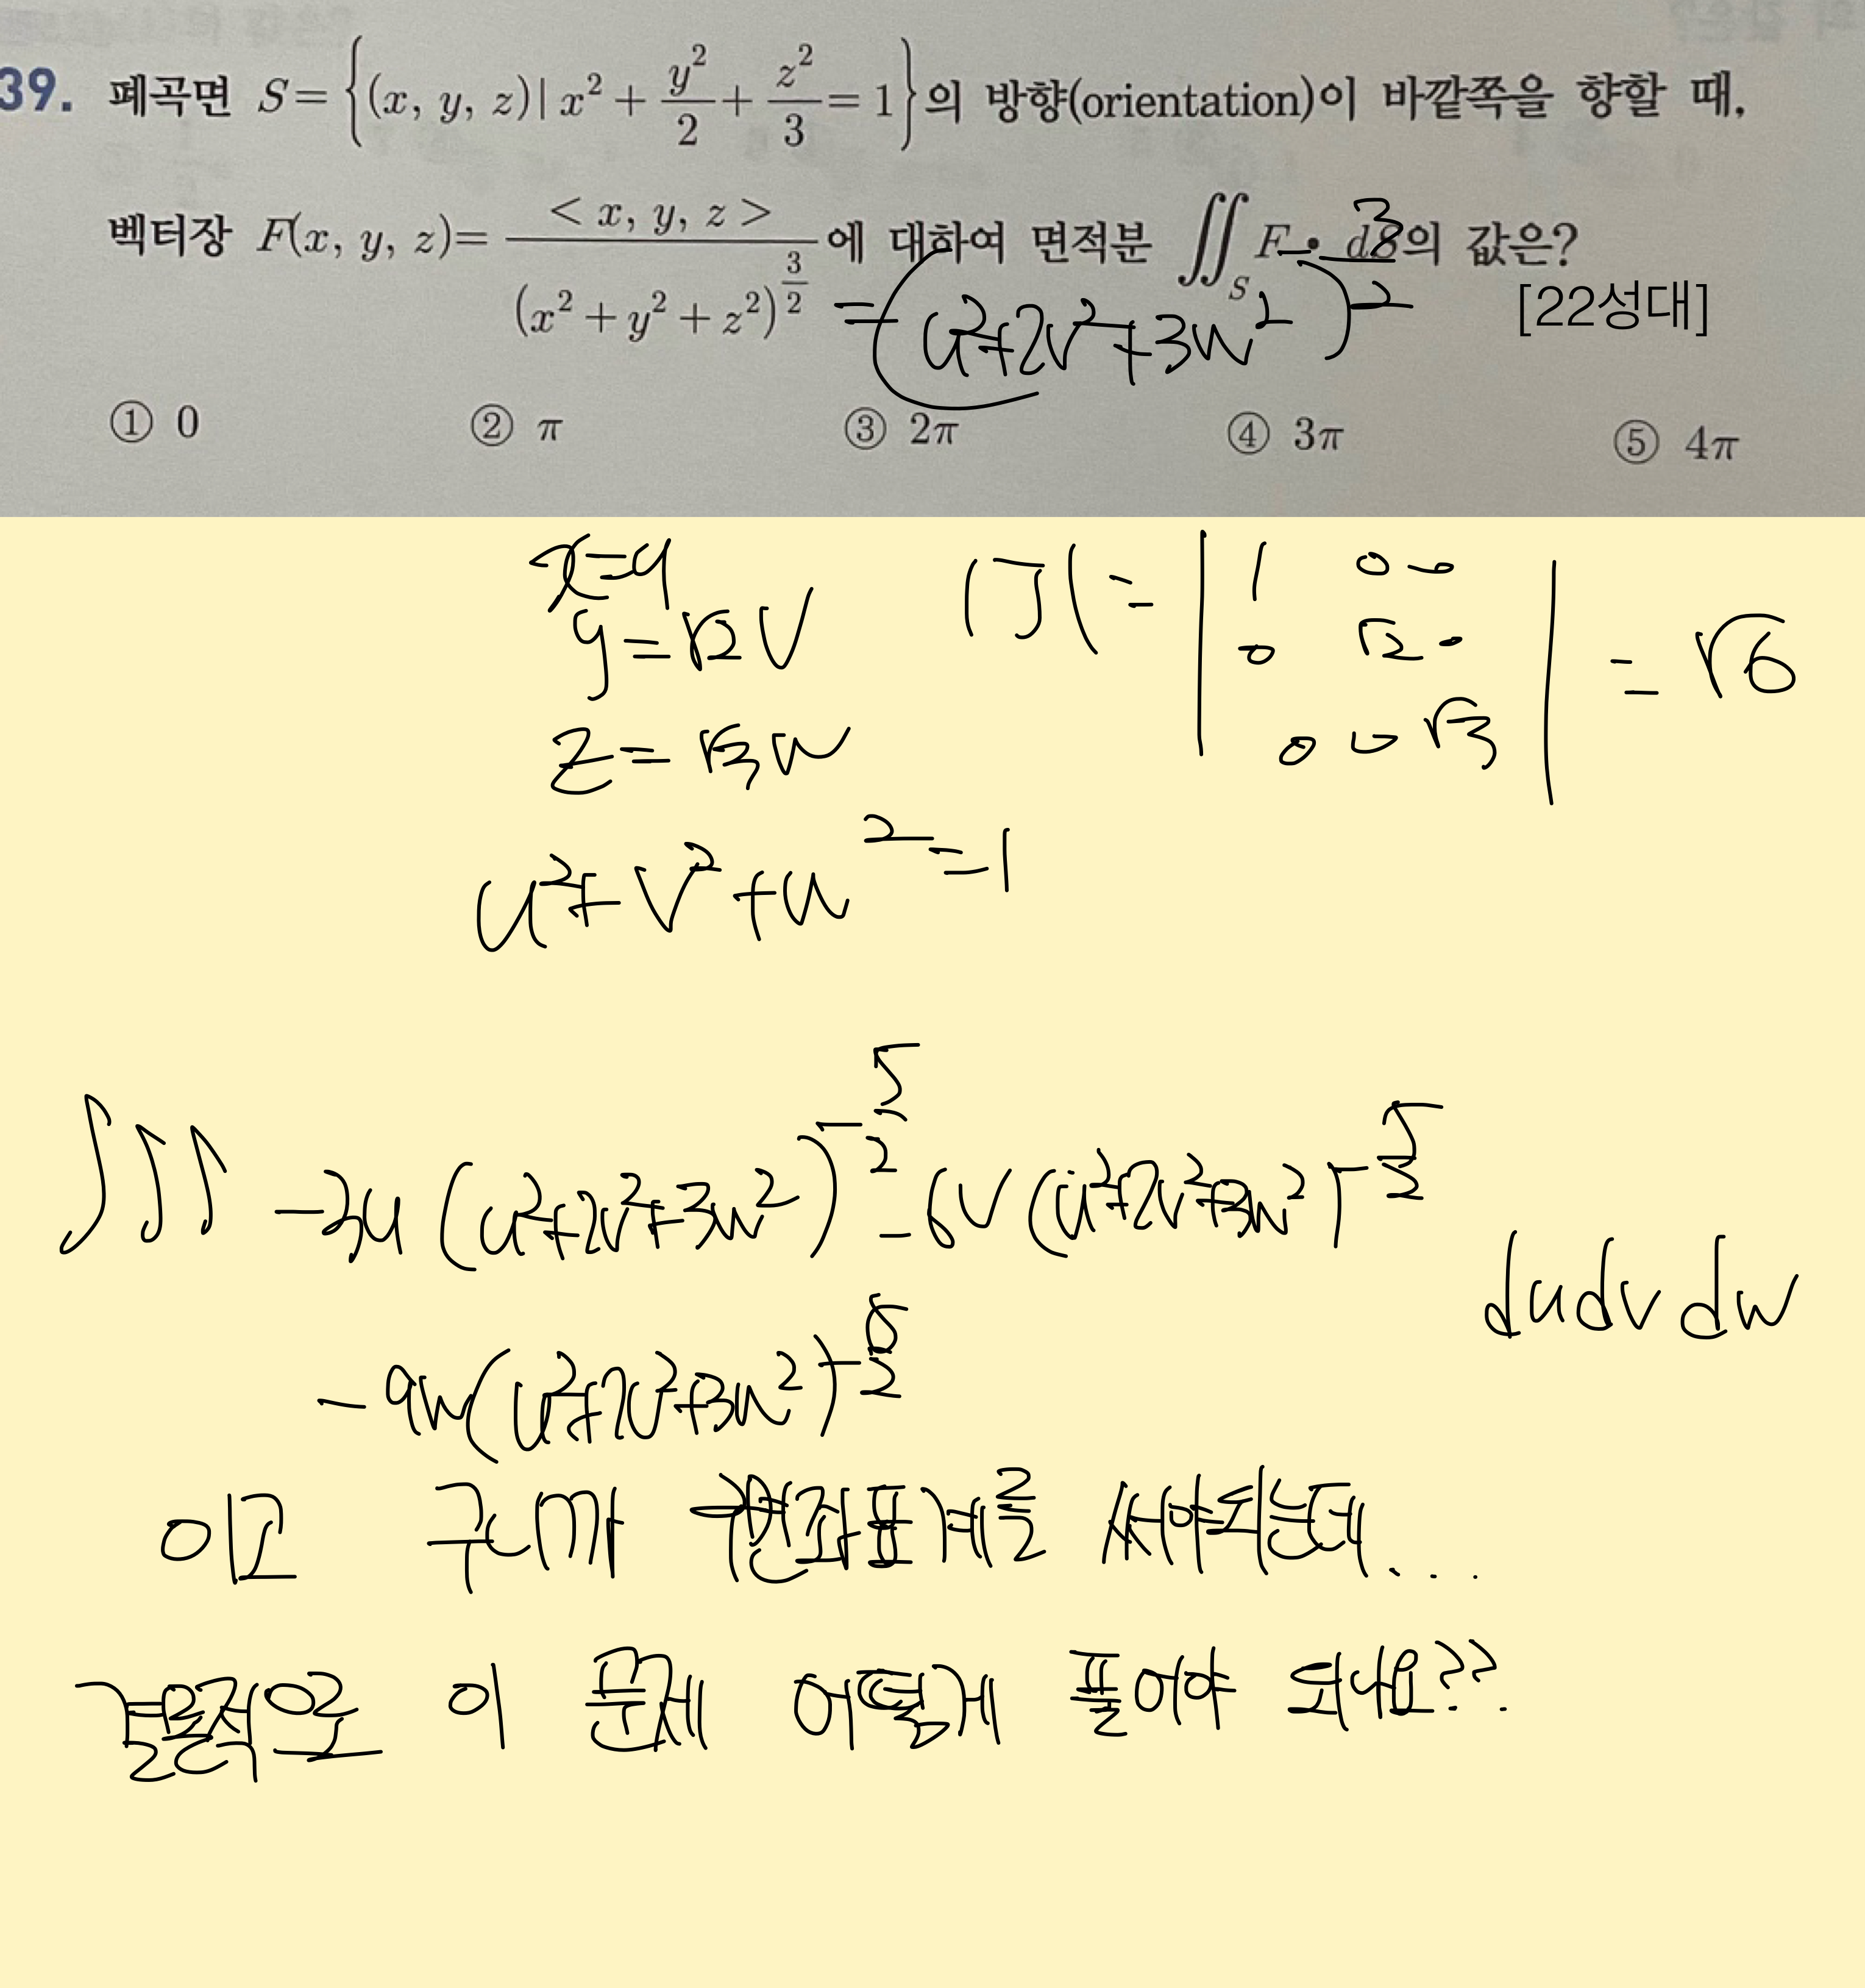 39. 폐곡면 S={(x, y, z)| x²+y²/2+z²/3=1}의 방향(orientation)이 바깥쪽을 향할 때,
벡터장 F(x, y, z)=<x, y, z>/(x²+y²+z²)^(3/2)에 대하여 면적분 ∬_S F•dS의 값은?
=(u²+2v²+3w²)^(3/2)
[22성대]
① 0 ② π ③ 2π ④ 3π ⑤ 4π
x=u
y=√2 v
z=√3 w
|J|=|1 0 0
0 √2 0
0 0 √3|=√6
u²+v²+w²=1
∭ -3u(u²+2v²+3w²)^(-5/2) -6v(u²+2v²+3w²)^(-5/2)
-9w(u²+2v²+3w²)^(-5/2) du dv dw
이고 구니까 구면좌표계를 써야되는데...
결론적으로 이 문제 어떻게 풀어야 되나요??